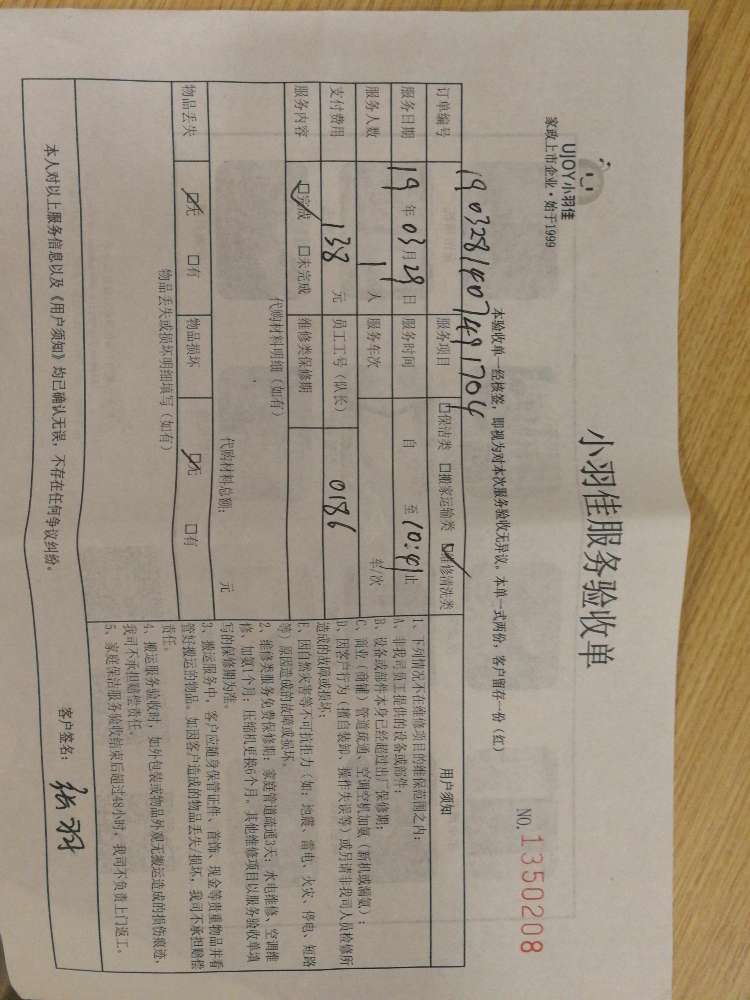 UJOY小羽佳
家政上市企业·始于1999
小羽佳服务验收单
NO.1350208
本验收单一经核签，即视为对本次服务验收无异议。本单一式两份，客户留存一份（红）
订单编号 1903281407491704 服务项目 口保洁类 口搬家运输类 口维修清洗类
服务日期 19年03月29日 服务时间 自 至10:41止
服务人数 1人 服务车次 车/次
支付费用 138元 员工工号（队长） 0186
服务内容 口完成 口未完成 维修类保修期
代购材料明细（如有）
代购材料总额： 元
物品丢失 口无 口有 物品损坏 口无 口有
物品丢失或损坏明细填写（如有）
用户须知
1、下列情况不在维修项目的维保范围之内：
A、非我司员工提供的设备或部件；
B、设备或部件本身已经超过出厂保修期；
C、商业（商铺）管道疏通、空调空机加氨（新机或漏氨）；
D、因客户行为（擅自装卸、操作失误等）或另请非我司人员检修所
造成的故障或损坏；
E、因自然灾害等不可抗拒力（如：地震、雷电、火灾、停电、短路
等）原因造成的故障或损坏。
2、维修类服务免费保修期：家庭管道疏通3天；水电维修、空调维
修、加氨1个月；压缩机更换6个月。其他维修项目以服务验收单填
写的保修期为准。
3、搬运服务中，客户应随身保管证件、首饰、现金等贵重物品并看
管好搬运的物品。如因客户造成的物品丢失/损坏，我司不承担赔偿
责任。
4、搬运服务验收时，如外包装或物品外观无搬运造成的损伤痕迹，
我司不承担赔偿责任。
5、家庭保洁服务验收结束后超过48小时，我司不负责上门返工。
本人对以上服务信息以及《用户须知》均已确认无误，不存在任何争议纠纷。
客户签名：